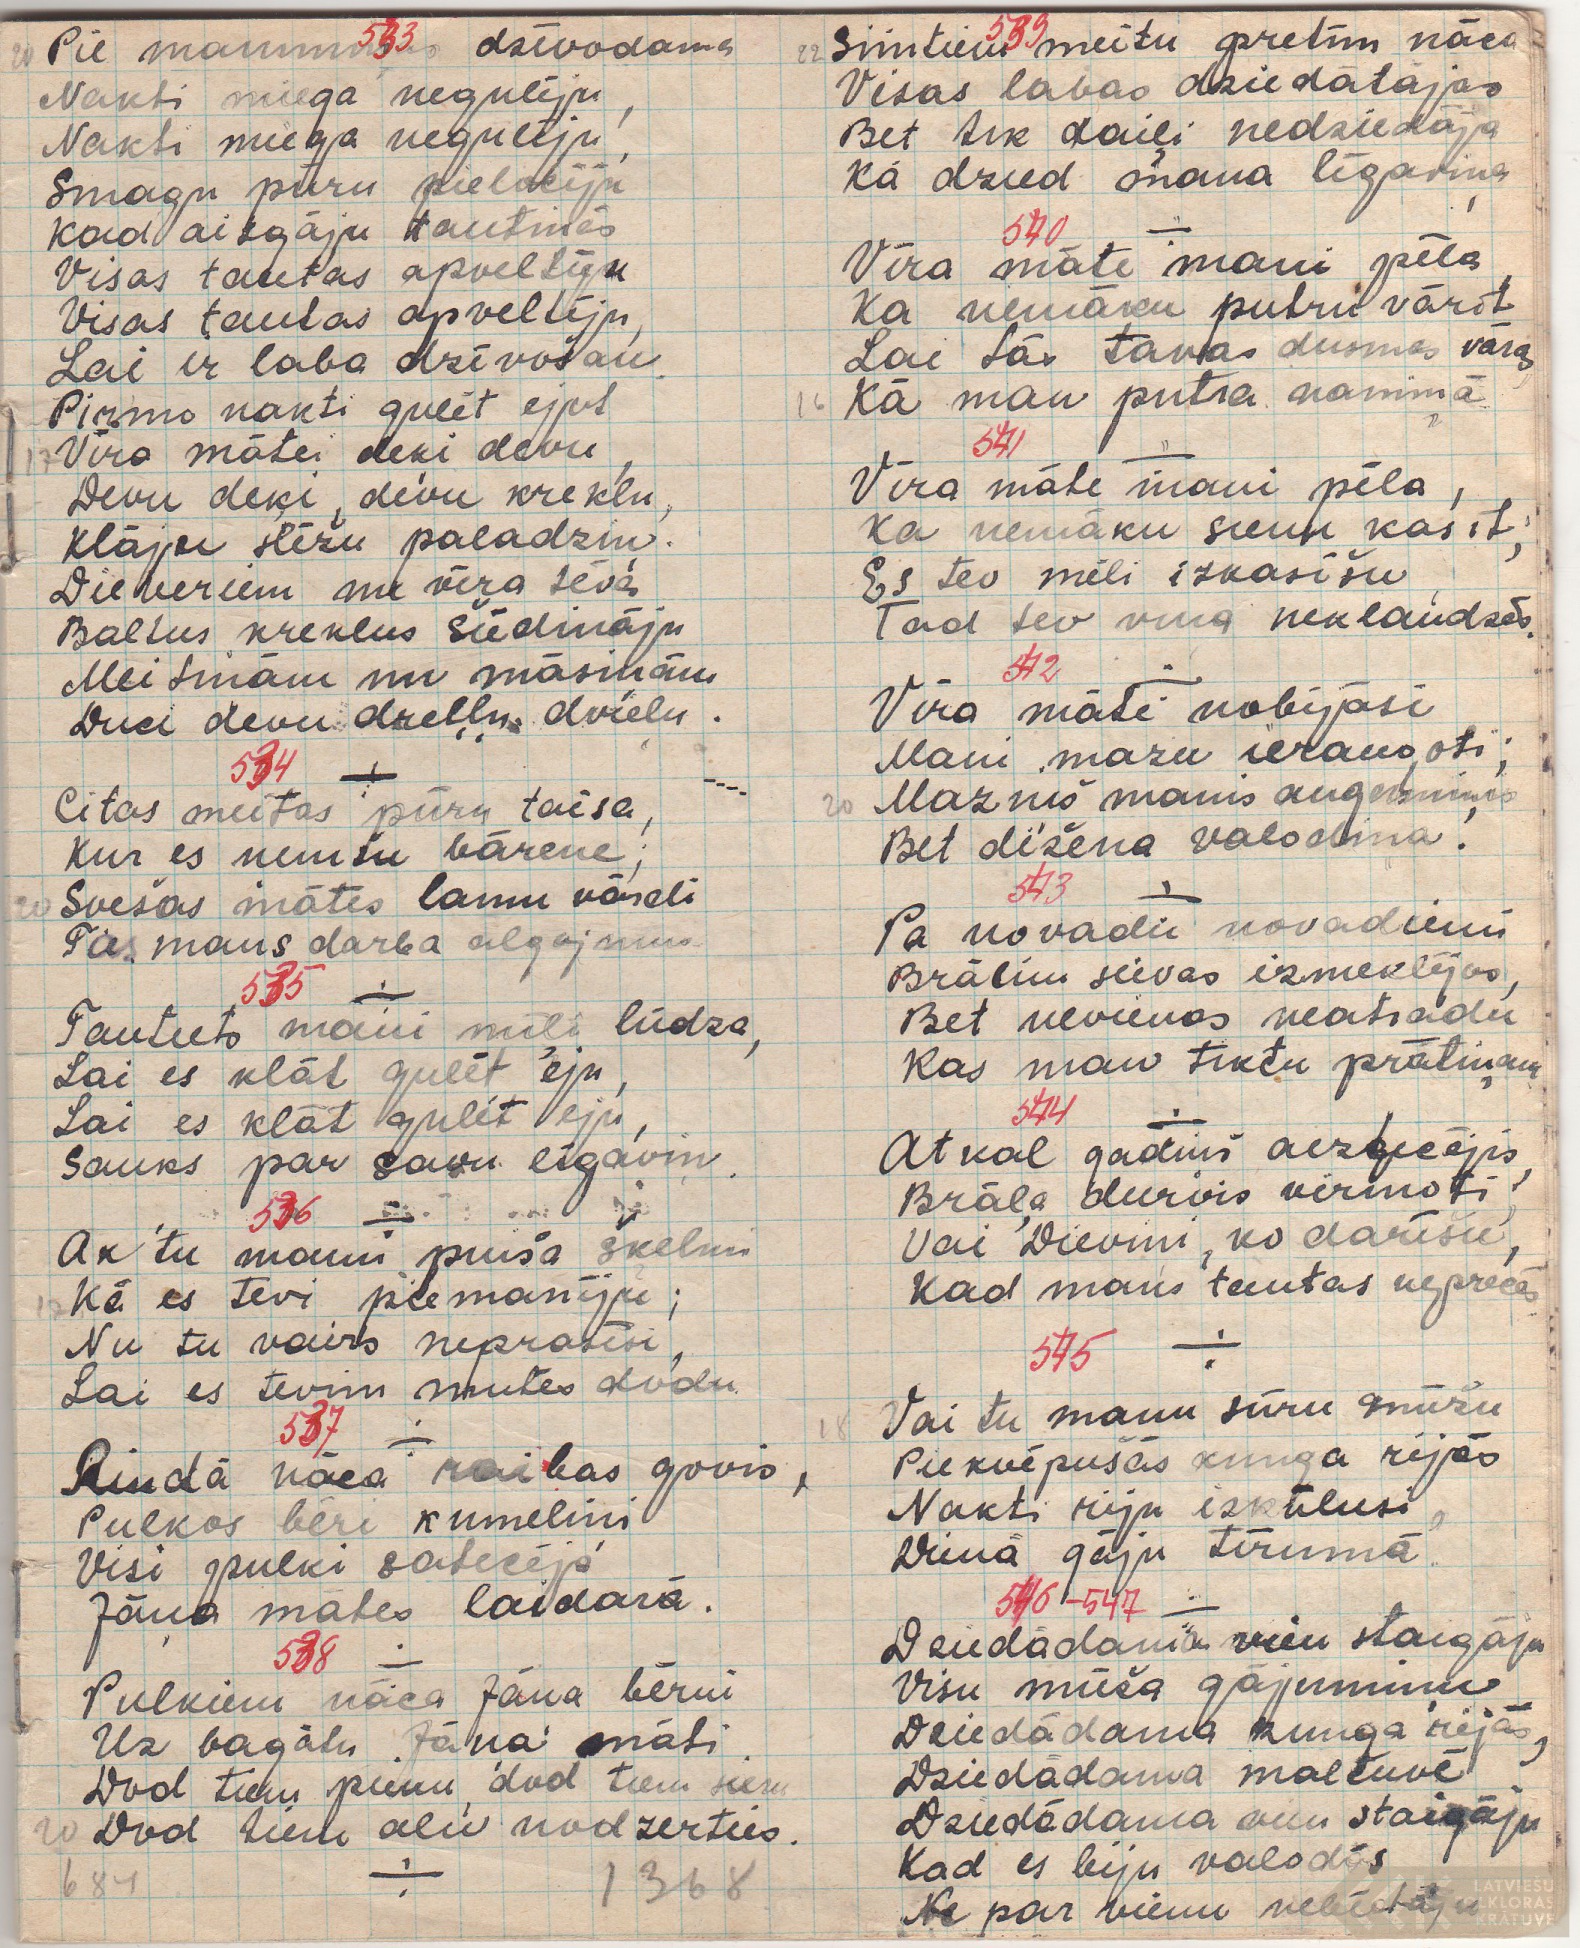 533
20 Pie mammiņas dzīvodama
Nakti miega negulēju,
Nakti miega negulēju,
Smagu pūru pielocīju
Kad aizgāju tautiņās
Visas tautas apveltīju
Visas tautas apveltīju,
Lai ir laba dzīvošan.
Pirmo nakti gulēt ejot
17 Vīra mātei deķi devu,
Devu deķi, devu kreklu,
Klāju slēžu paladziņ.
Dieveriem un vīra tēvs
Baltus kreklus šūdināju
Meitiņām un māsiņām
Duci devu dzeļļu dvieļu.
534
Citas meitas pūru taisa,
Kur es nemšu bārene;
20 Svešas mātes lamu vārdi
Tas mans darba algojums
535
Tautiets mani mīļi lūdza,
Lai es klāt gulēt eju,
Lai es klāt gulēt eju,
Sauks par savu līgaviņ.
536
Ak tu manu puiša šķelmi
Kā es tevi piemānīju;
Nu tu vairs neprasīsi,
Lai es tevim mutes dodu.
537
Rindā nāca raibas govis,
Pulkos bēri kumeliņi
Visi pulki satecēja
Jāņa mātes laidarā.
538
Pulkiem nāca Jāņa bērni
Uz bagātu Jāņa māti
Dod tiem pienu, dod tiem sieru
20 Dod tiem alu nodzerties.
684 1368
539
22 Simtiem meitu pretim nāca
Visas labas dziedātājas
Bet tik daiļi nedziedāja
Kā dzied mana līgaviņa
540
Vīra māte mani pēla,
Ka nemāku putru vārīt
Lai tās tavas dusmas vāra,
16 Kā man putra nammā
541
Vīra māte mani pēla,
Ka nemāku sienu kasīt;
Es tev mēli izkasīšu
Tad tev viņa neklaudzēs.
542
Vīra māte nobijāsi
Mani mazu ieraugoti;
20 Mazniš manis augumiņis
Bet dižena valodiņa.
543
Pa novadu novadiemi
Brālim sievas izmeklējos,
Bet nevienas neatradu
Kas man tiktu prātiņam
544
Atkal gadiņš aiztecējis,
Brāļa durvis virinoti;
Vai Dieviņi, ko darīšu,
Kad mani tautas neprecēs
545
18 Vai tu manu sūru mūžu
Piekvēpušās kunga rijās
Nakti riju izkūlusi,
Dienā gāju tīrumā.
546-547
Dziedādama vien staigāju
Visu mūža gājumiņu
Dziedādama kunga rijās,
Dziedādama maltuvē
Dziedādama vien staigāju
Kad es biju valodās
Ne par vienu nebēdāju
LATVIEŠU
FOLKLORAS
KRĀTUVE